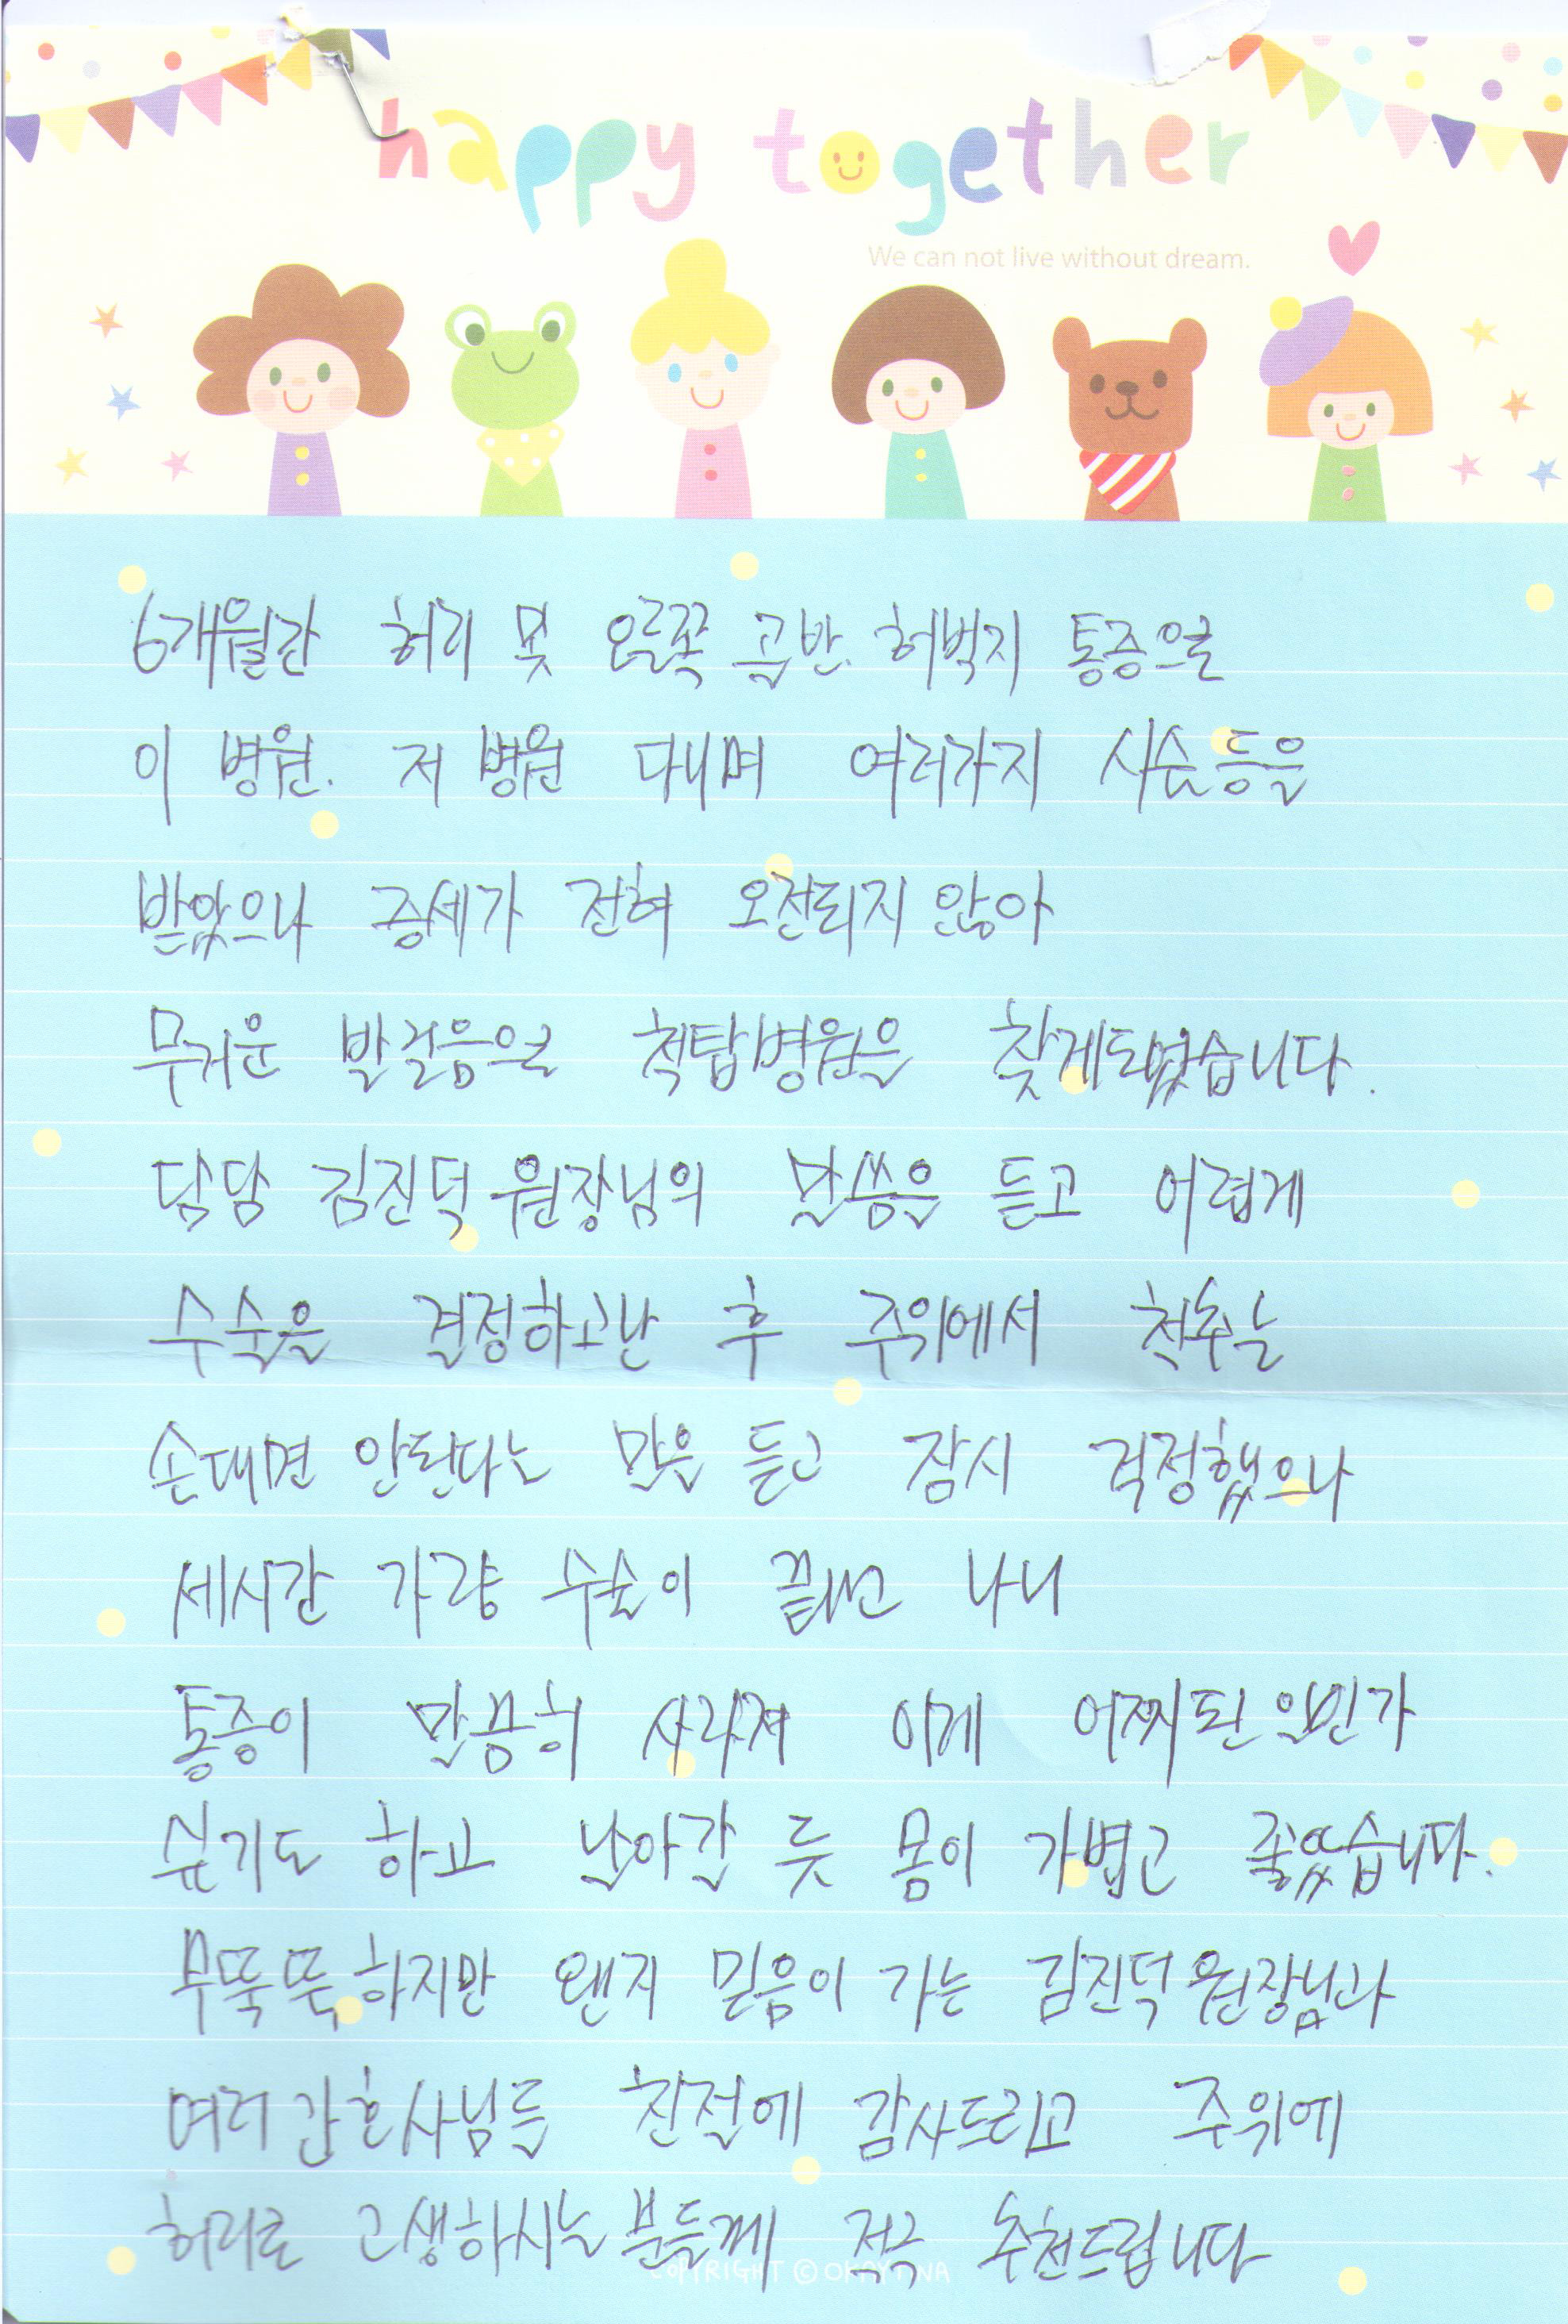 happy together
We can not live without dream.
6개월간 허리 및 오른쪽 골반. 허벅지 통증으로
이 병원. 저 병원 다니며 여러가지 시술등을
받았으나 증세가 전혀 호전되지 않아
무거운 발걸음으로 척탑병원을 찾게되었습니다.
담당 김진덕 원장님의 말씀을 듣고 어렵게
수술을 결정하고난 후 주위에서 척추는
손대면 안된다는 말을 듣고 잠시 걱정했으나
세시간 가량 수술이 끝나고 나니
통증이 말끔히 사라져 이게 어찌된 일인가
싶기도 하고 날아갈 듯 몸이 가볍고 좋았습니다.
무뚝뚝하지만 왠지 믿음이 가는 김진덕 원장님과
여러 간호사님들 친절에 감사드리고 주위에
허리로 고생하시는 분들께 적극 추천드립니다
COPYRIGHT © OKAYTINA